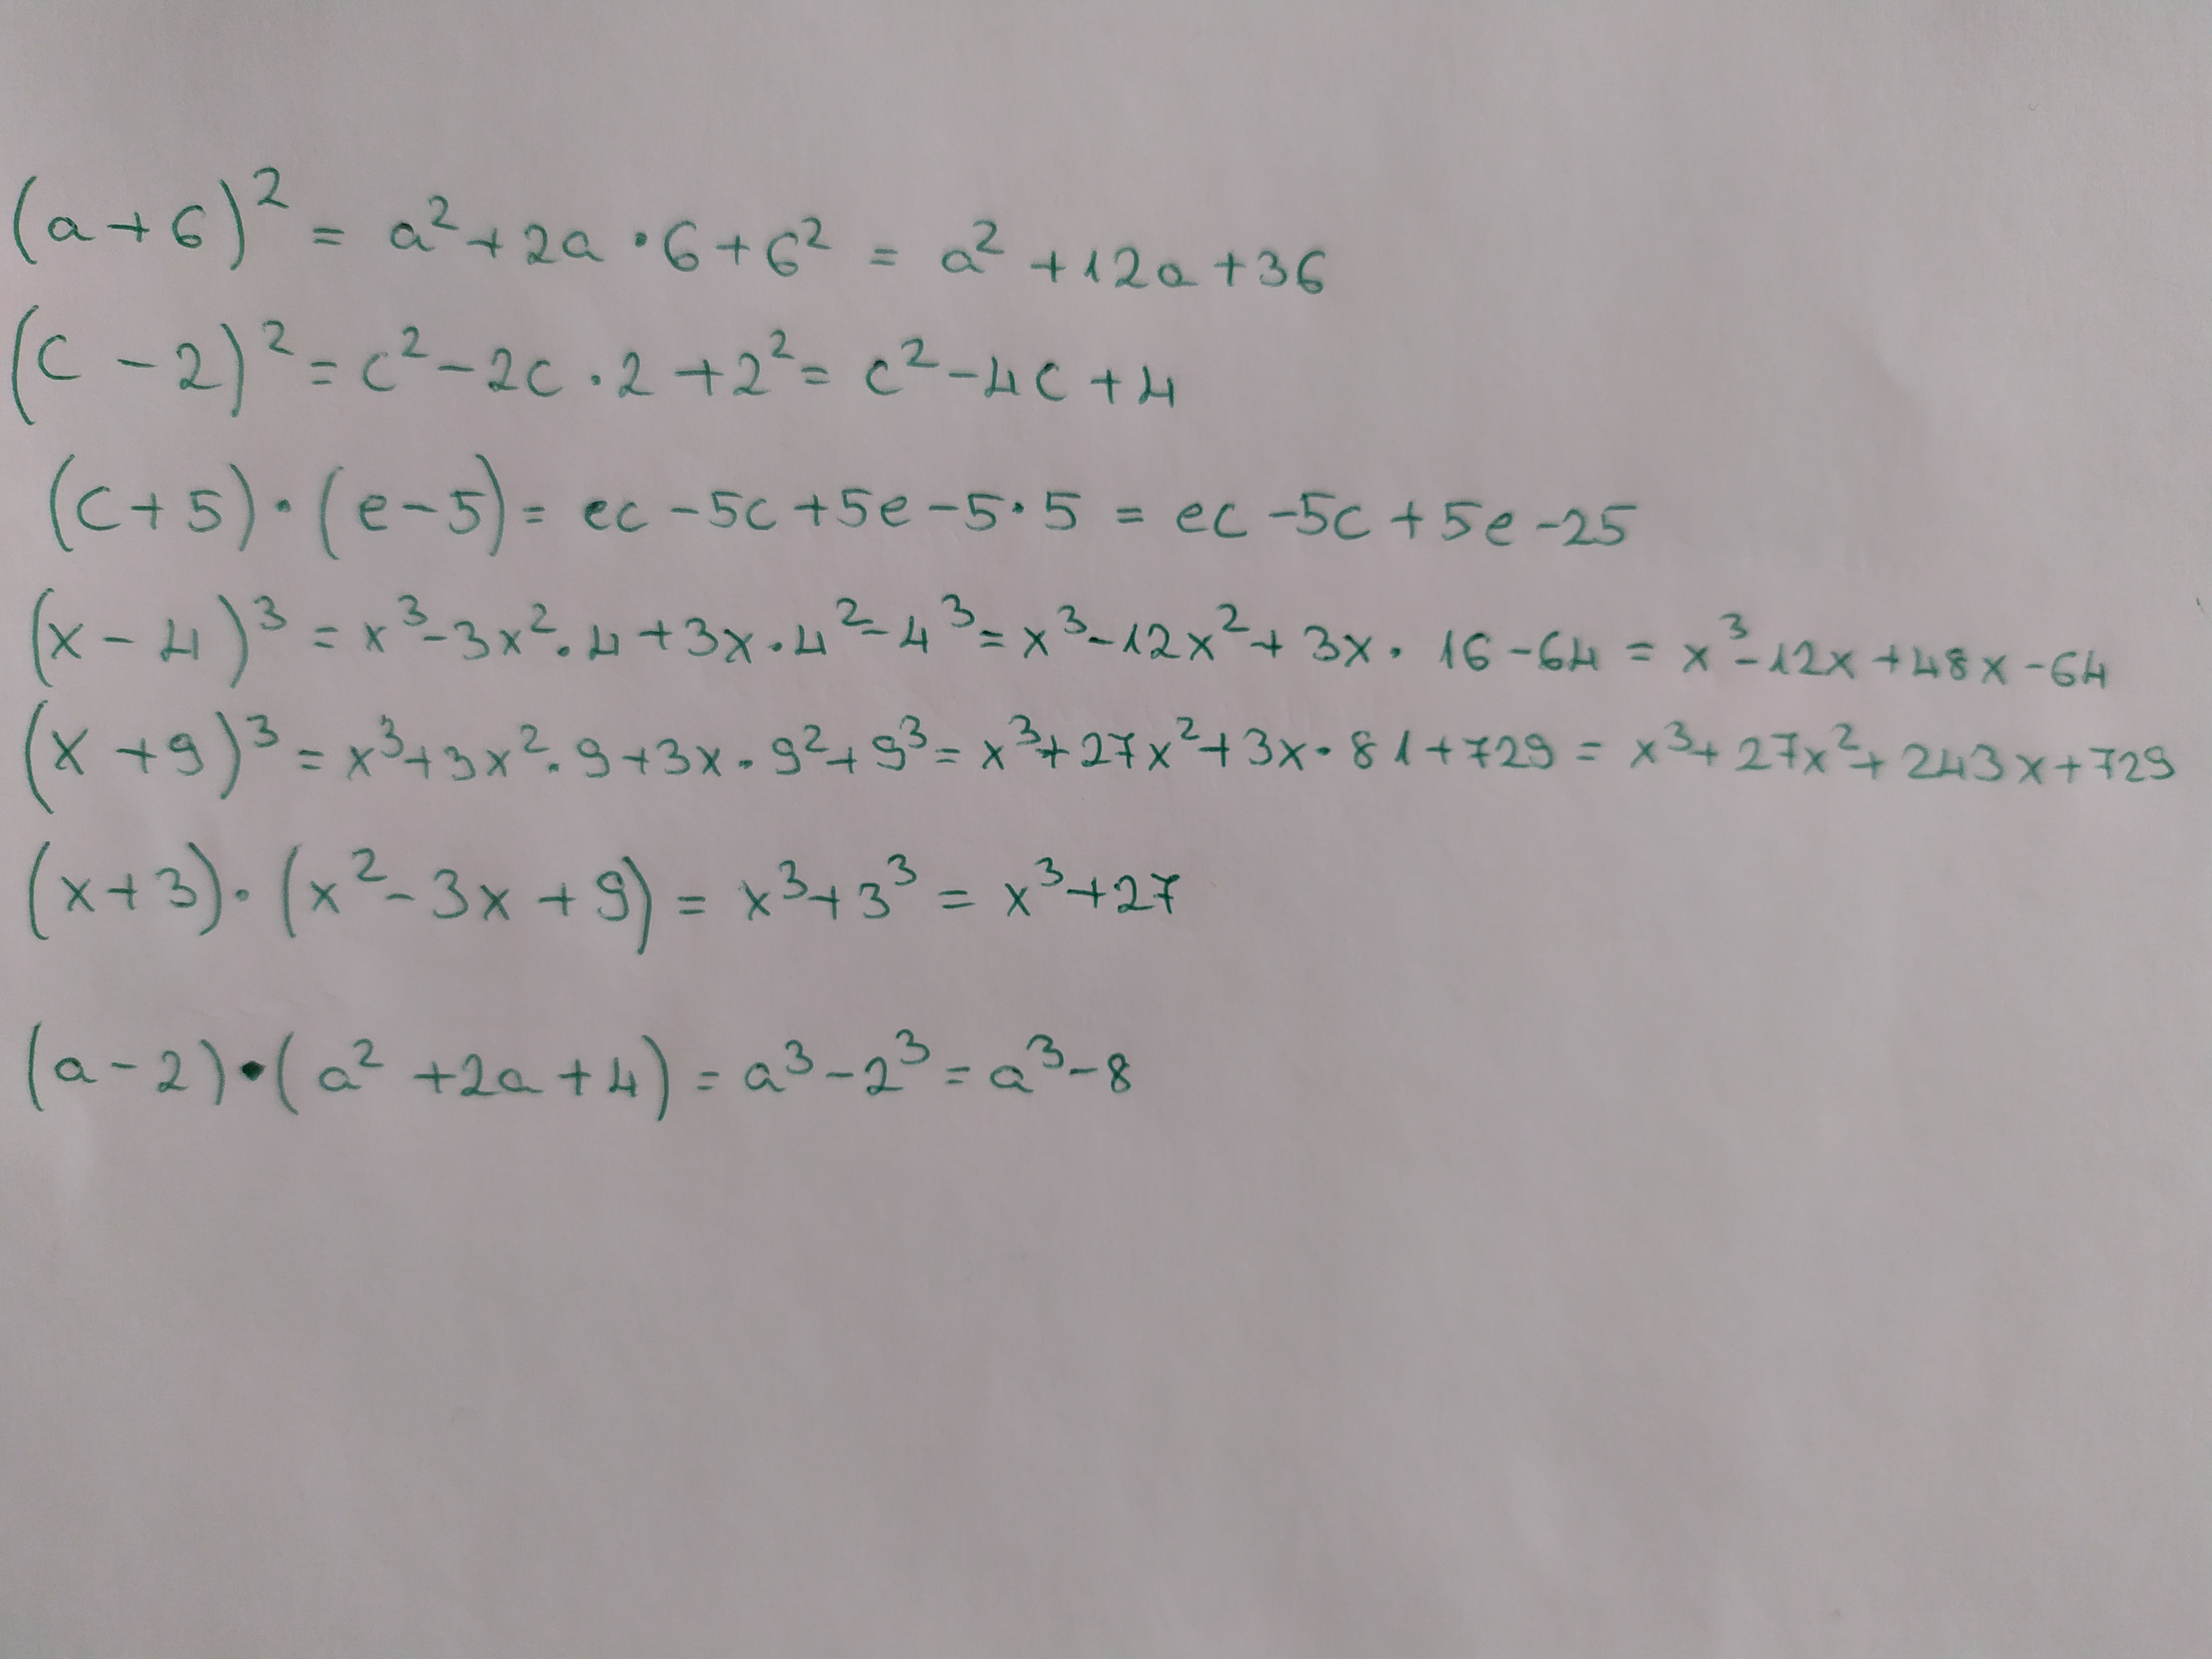 (a+6)² = a²+2a·6+6² = a²+12a+36
(c-2)² = c²-2c·2+2² = c²-4c+4
(c+5)·(e-5) = ec-5c+5e-5·5 = ec-5c+5e-25
(x-4)³ = x³-3x²·4+3x·4²-4³ = x³-12x²+3x·16-64 = x³-12x+48x-64
(x+9)³ = x³+3x²·9+3x·9²+9³ = x³+27x²+3x·81+729 = x³+27x²+243x+729
(x+3)·(x²-3x+9) = x³+3³ = x³+27
(a-2)·(a²+2a+4) = a³-2³ = a³-8